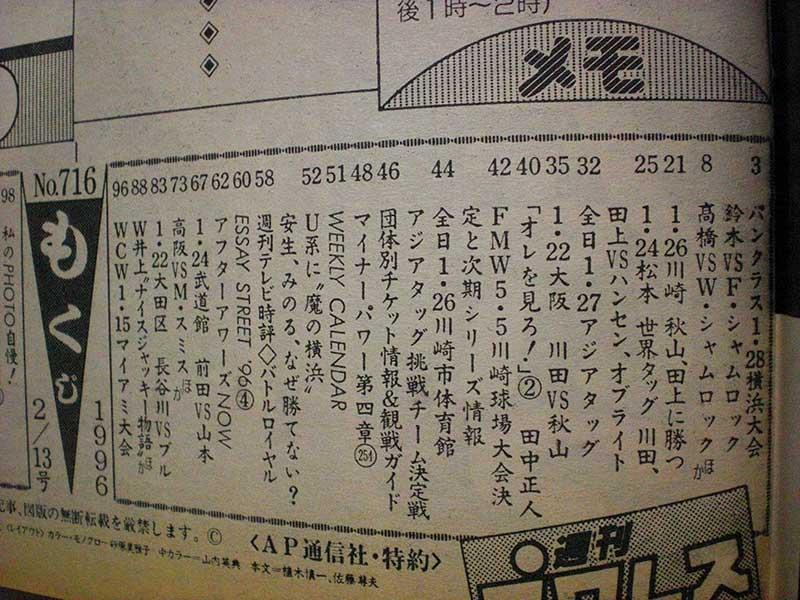 後1時〜2時)
メモ
3 パンクラス1・28横浜大会
鈴木VSF・シャムロック
8 高橋VSW・シャムロックほか
21 1・26川崎 秋山、田上に勝つ
25 1・24松本 世界タッグ 川田、
田上VSハンセン、オブライト
32 全日1・27アジアタッグ
35 1・22大阪 川田VS秋山
40 「オレを見ろ!」② 田中正人
42 FMW5・5川崎球場大会決
定と次期シリーズ情報
44 全日1・26川崎市体育館
アジアタッグ挑戦チーム決定戦
46 団体別チケット情報&観戦ガイド
48 マイナーパワー第四章(254)
51 WEEKLY CALENDAR
52 U系に〝魔の横浜〟
安生、みのる、なぜ勝てない?
58 週刊テレビ時評◇バトルロイヤル
60 ESSAY STREET '96④
62 アフターアワーズNOW
67 1・24武道館 前田VS山本
73 高阪VSM・スミスほか
83 1・22大田区 長谷川VSブル
88 W井上〝ナイスジャッキー物語〟ほか
96 WCW1・15マイアミ大会
No.716
もくじ
1996
2/13号
98
私のPHOTO自慢!
記事、図版の無断転載を厳禁します。©
〈レイアウト〉カラー・モノグロ=砂原美預子 中カラー=山内英典 本文=植木慎一、佐藤尊夫
〈AP通信社・特約〉
週刊
プロレス